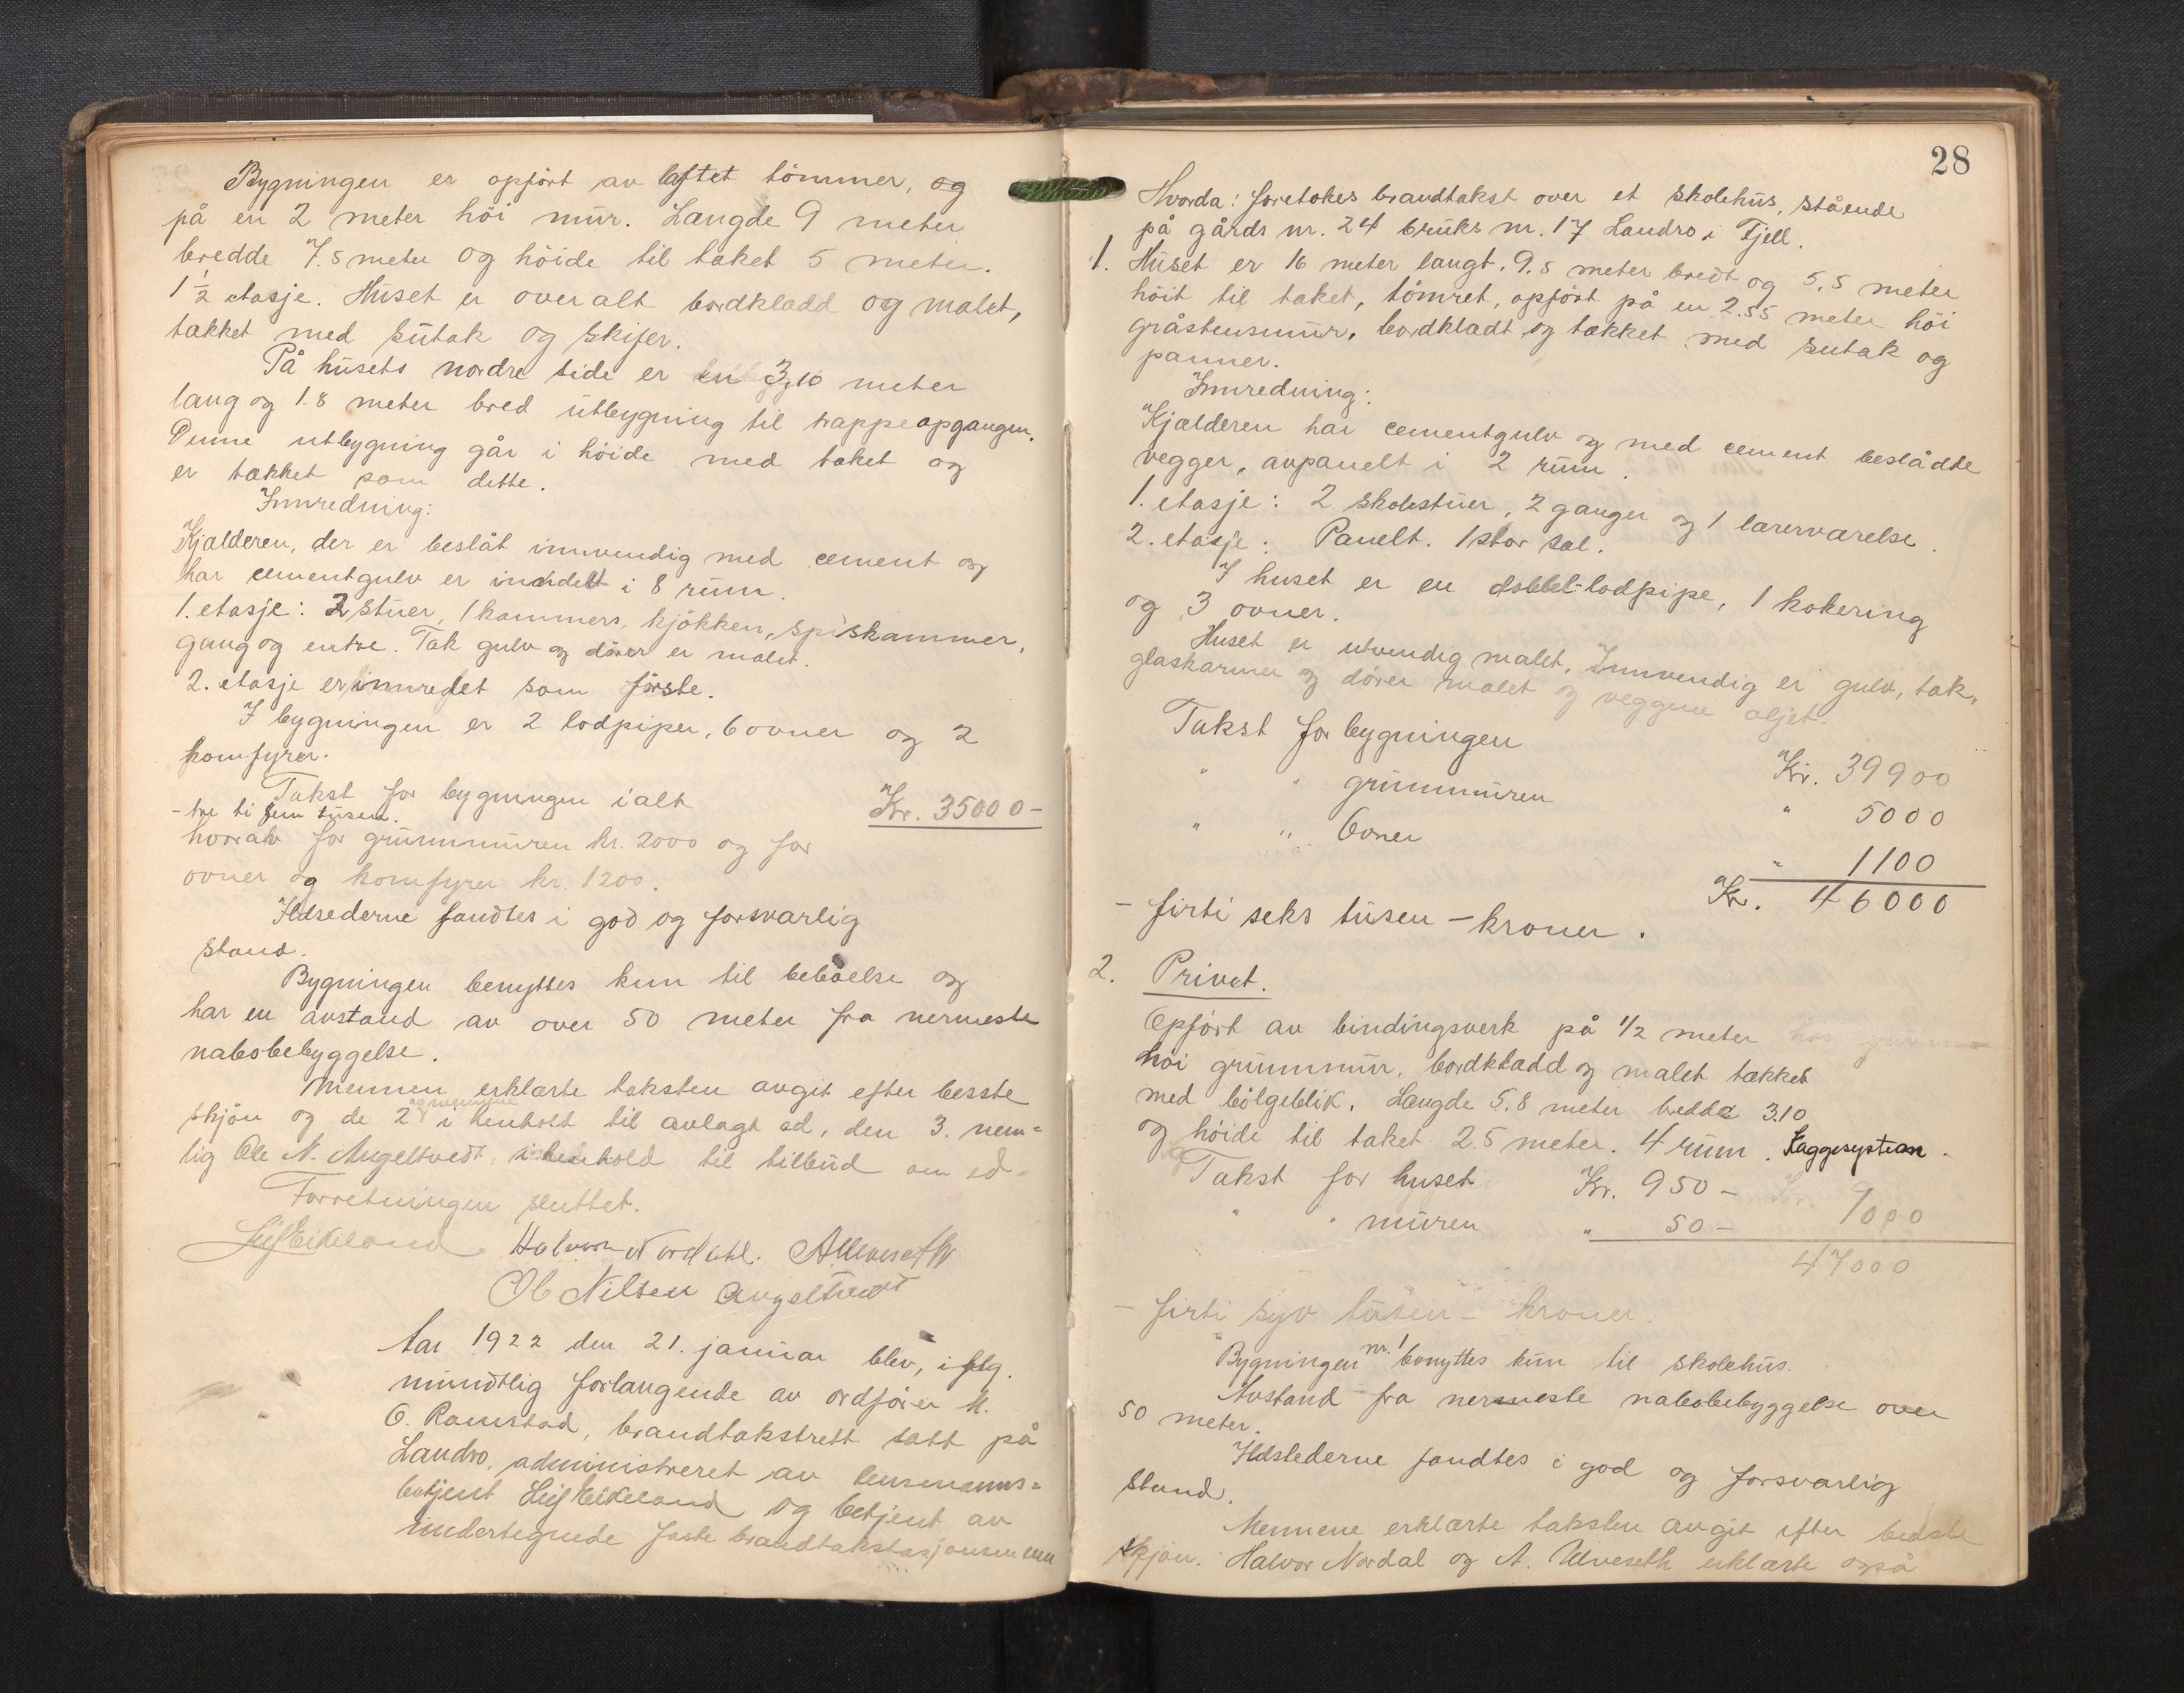 Bygningen er opført av laftet tømmer, og
på en 2 meter høi mur. Længde 9 meter
bredde 7.5 meter og høide til taket 5 meter.
1 1/2 etasje. Huset er overalt bordklædd og malet,
tækket med sutak og skifer.
På husets nordre side er en 3,10 meter
lang og 1.8 meter bred utbygning til trappeopgangen.
Denne utbygning går i høide med taket og
er tækket som dette.
Innredning:
Kjælderen, der er beslåt innvendig med cement og
har cementgulv er inndelt i 8 rum.
1. etasje: 2 stuer, 1 kammers, kjøkken, spiskammer,
gang og entre. Tak gulv og dører er malet.
2. etasje er innredet som første.
I bygningen er 2 lodpiper, 6 ovner og 2
komfyrer.
Takst for bygningen ialt Kr. 35000 –
– tre ti fem tusen.
hvorav for grunnmuren kr. 2000 og for
ovner og komfyrer kr. 1200.
Ildsederne fandtes i god og forsvarlig
stand.
Bygningen benyttes kun til beboelse og
har en avstand av over 50 meter fra nermeste
nabobebyggelse.
Mennene erklærte taksten avgit efter besste
skjøn og de 2 i henholt til avlagt ed, den 3. nem=
lig Ole N. Angeltvedt, i henhold til tilbud om ed.
Forretningen sluttet.
Leif Eikeland Halvor Nordahl. A Ulveseth
Ole Nilsen Angeltvedt
Aar 1922 den 21. januar blev, i flg.
mundtlig forlangende av ordfører M.
O. Ramstad, brandtakstrett satt på
Landro, administreret av lensmanns=
betjent Leif Eikeland og betjent av
undertegnede faste brandtakstasjonsmenn
28
Hvorda: foretokes brandtakst over et skolehus, stående
på gårds nr. 24 bruks nr. 17 Landro i Fjell.
1. Huset er 16 meter langt. 9.5 meter bredt og 5,5 meter
høit til taket, tømret, opført på en 2.55 meter høi
gråstensmur, bordklædt og tækket med sutak og
panner.
Innredning:
Kjælderen har cementgulv og med cement beslådte
vegger, avpanelt i 2 rum.
1. etasje: 2 skolestuer, 2 ganger og 1 lærerværelse.
2. etasje: Panelt. 1 stor sal.
I huset er en dobbel-lodpipe, 1 kokering
og 3 ovner.
Huset er utvendig malet. Innvendig er gulv, tak,
glaskarmer og dører malet og veggene oljet.
Takst for bygningen Kr. 39900
" " grunnmuren " 5000
" " Ovner " 1100
Kr. 46000
– firti seks tusen – kroner.
2. Privet.
Opført av bindingsverk på 1/2 meter
høi grunnmur, bordklædd og malet tækket
med bølgeblik. Længde 5.8 meter bredde 3.10
og høide til taket 2.5 meter. 4 rum. Kaggesystem.
Takst for huset Kr. 950 –
" " muren " 50 – 1000
47000
– firti syv tusen – kroner.
Bygningen nr. 1 benyttes kun til skolehus.
Avstand fra nermeste nabobebyggelse over
50 meter.
Ildstederne fandtes i god og forsvarlig
stand.
Mennene erklærte taksten avgit efter bedste
skjøn. Halvor Nordal og A. Ulveseth erklærte også